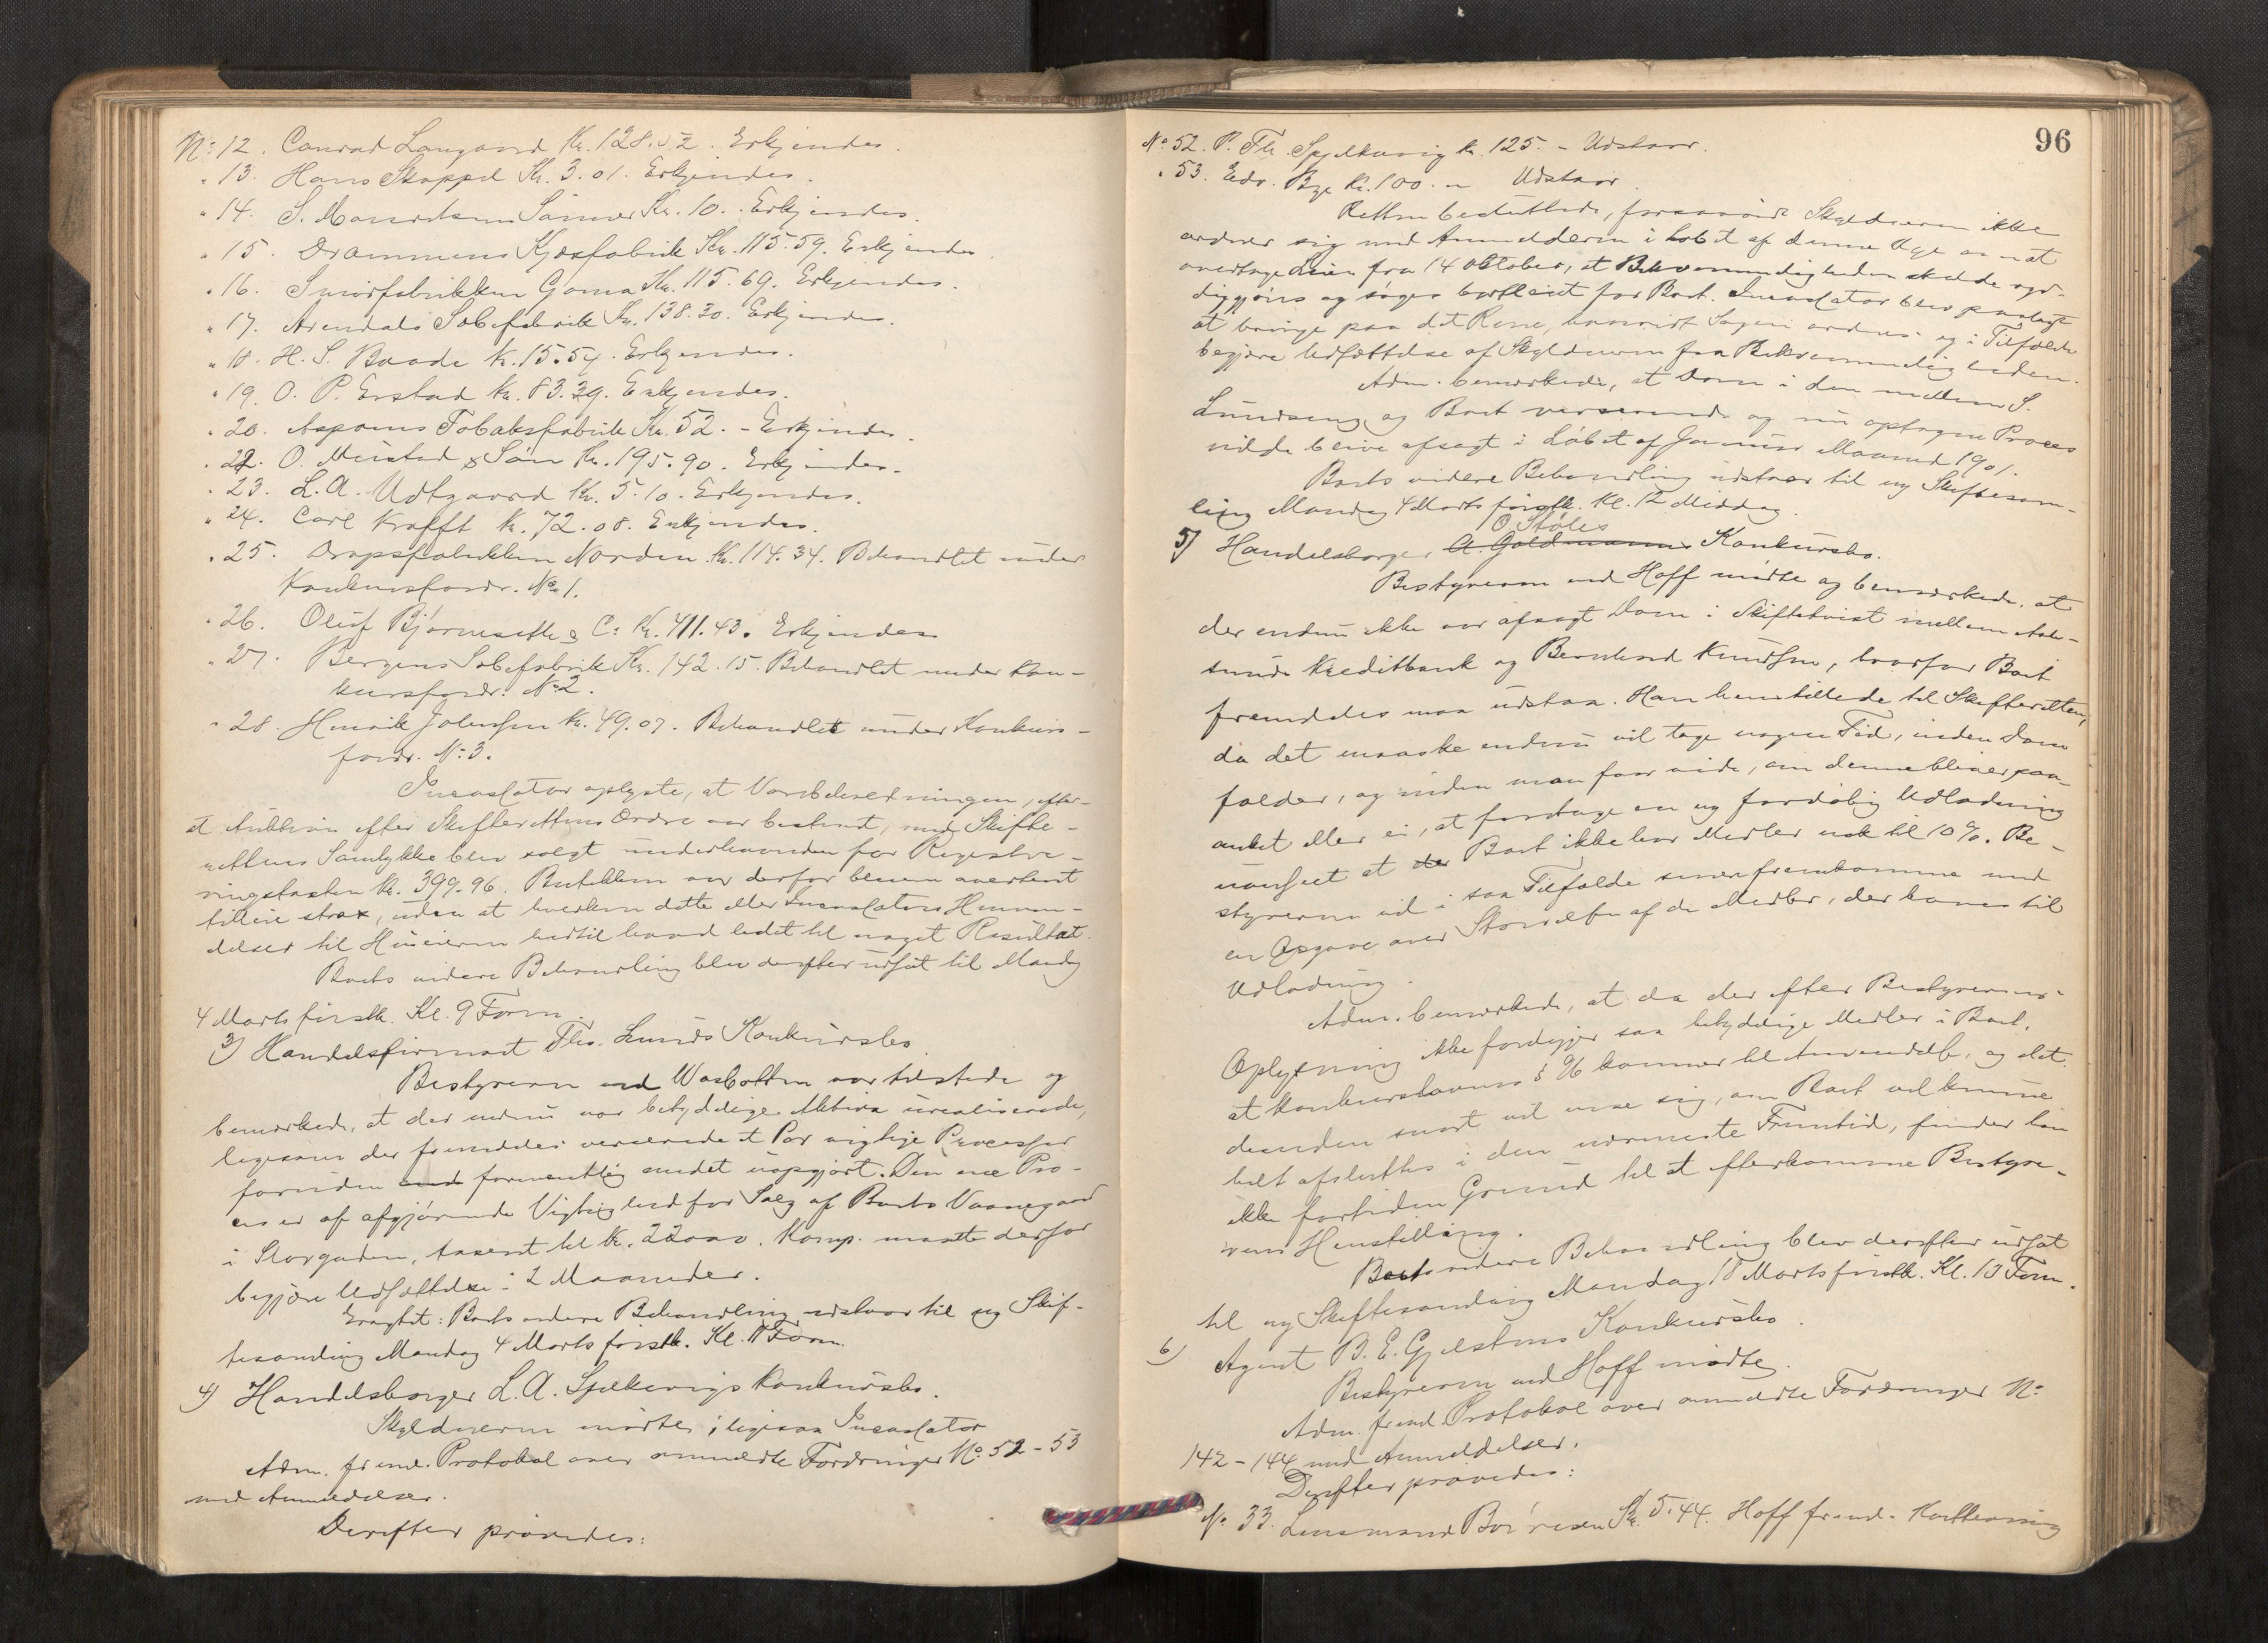 No 12. Conrad Langaard Kr. 128.02. Erkjendes.
" 13. Hans Skappel Kr. 3.01. Erkjendes.
" 14. S. Sønner Kr. 10. Erkjendes.
" 15. Drammens Kjæxfabrik Kr. 115.59. Erkjendes.
" 16. Smørfabrikken Goma Kr. 115.69. Erkjendes.
" 17. Arendals Sæbefabrik Kr. 138.30. Erkjendes.
" 18. H. S. Baade Kr. 15.54. Erkjendes.
" 19. O. P. Erstad Kr. 83.39. Erkjendes.
" 20. Tobaksfabrik Kr. 52. - Erkjendes.
" 22. O. Mustad & Søn Kr. 195.90. Erkjendes.
" 23. L. A. Udtgaard Kr. 5.10. Erkjendes.
" 24. Carl Krafft Kr. 72.08. Erkjendes.
" 25. Dropsfabrikken Norden Kr. 114.34. Behandlet under
Konkursfordr. No 1.
" 26. Oluf Bjørnseth & Co Kr. 411.43. Erkjendes
" 27. Bergens Sæbefabrik Kr. 142.15. Behandlet under Kon-
kursfordr. No 2.
" 28. Henrik Johnsen Kr. 49.07. Behandlet under Konkurs-
fordr. No 3.
Incassator oplyste, at Varebeholdningen, efter
at Auktion efter Skifterettens Ordre var bestemt, med Skifte-
rettens Samtykke blev solgt underhaanden for Registre-
ringstaxten Kr. 399.96. Butikken var derfor bleven avertert
tilleie strax, uden at hverken dette eller Incassators Henven-
delser til Huseieren hidtil havde ledet til noget Resultat.
Boets videre Behandling blev derefter udsat til Mandag
4 Marts førstk. Kl. 9 Form.
3) Handelsfirmaet Ths. Lunds Konkursbo.
Bestyreren ved Wasbotten var tilstede og
bemærkede, at der endnu var betydelige Aktiva urealiserede,
ligesom der fremdeles verserede et Par vigtige Processer
foruden formentlig andet uopgjort. Den ene Pro-
ces er af afgjørende Vigtighed for Salg af Boets Vaanegaard
i Storgaden, taxeret til Kr. 22000. Komp. maatte derfor
begjære Udsættelse i 2 Maaneder.
Eragtet: Boets videre Behandling udstaar til ny Skif-
tesamling Mandag 4 Marts førstk. Kl. 11 Form.
4) Handelsborger L. A. Spjelkavigs Konkursbo.
Skyldneren mødte; ligesaa Incassator
Adm. freml. Protokol over anmeldte Fordringer No 52-53
med Anmeldelser.
Derefter prøvedes:
96
No 52. P. Fr. Spjelkavig Kr. 125 - Udstaar.
" 53. Edv. Bye Kr. 100. - Udstaar.
Retten besluttede, forsaavidt Skyldneren ikke
ordner sig med Anmelderen i Løbet af denne Uge om at
overtage Leien fra 14 Oktober, at Bekvemmeligheden skulde ryd-
diggjøres og søges bortleiet for Boet. Incassator blev paalagt
at bringe paa det Rene, hvorvidt Sagen ordnes og i Tilfælde
begjære Udsættelse af Skyldneren fra Bekvemmeligheden.
Adm. bemærkede, at Dom i den mellem S.
Lundseng og Boet verserende og nu optagne Proces
vilde blive afsagt i Løbet af Januar Maaned 1901.
Boets videre Behandling udstaar til ny Skiftesam-
ling Mandag 4 Marts førstk. Kl. 12 Middag.
O. Støles
5) Handelsborger A. Goldmanns Konkursbo.
Bestyreren ved Hoff mødte og bemærkede, at
der endnu ikke var afsagt Dom i Skiftetvist mellem Aale-
sunds Kreditbank og Bernhard Knudsen, hvorfor Boet
fremdeles maa udstaa. Han henstillede til Skifteretten,
da det maaske endnu vil tage nogen Tid, inden Dom
falder, og inden man faar vide, om denne bliver paa-
anket eller ei, at foretage en ny foreløbig Udlodning
uanseet at der Boet ikke har Midler nok til 10%. Be-
styreren vil i saa Tilfælde senere fremkomme med
en Opgave over Størrelsen af de Midler, der kommer til
Udlodning.
Adm. bemærkede, at da der efter Bestyrerens
Oplysning ikke foreligger saa betydelige Midler i Boet,
at Konkurslovens § 96 kommer til Anvendelse, og det
desuden snart vil vise sig, om Boet vil kunne
helt afsluttes i den nærmeste Fremtid, finder han
ikke fortiden Grund til at efterkomme Bestyre-
rens Henstilling.
Boets videre Behandling blev derefter udsat
til ny Skiftesamling Mandag 18 Marts førstk. Kl. 10 Form.
6) Agent B. E. Gjelstens Konkursbo.
Bestyreren ved Hoff mødte.
Adm. freml. Protokol over anmeldte Fordringer No
142-144 med Anmeldelser.
Derefter prøvedes:
No 33. Lensmand Kr. 5.44. Hoff freml.